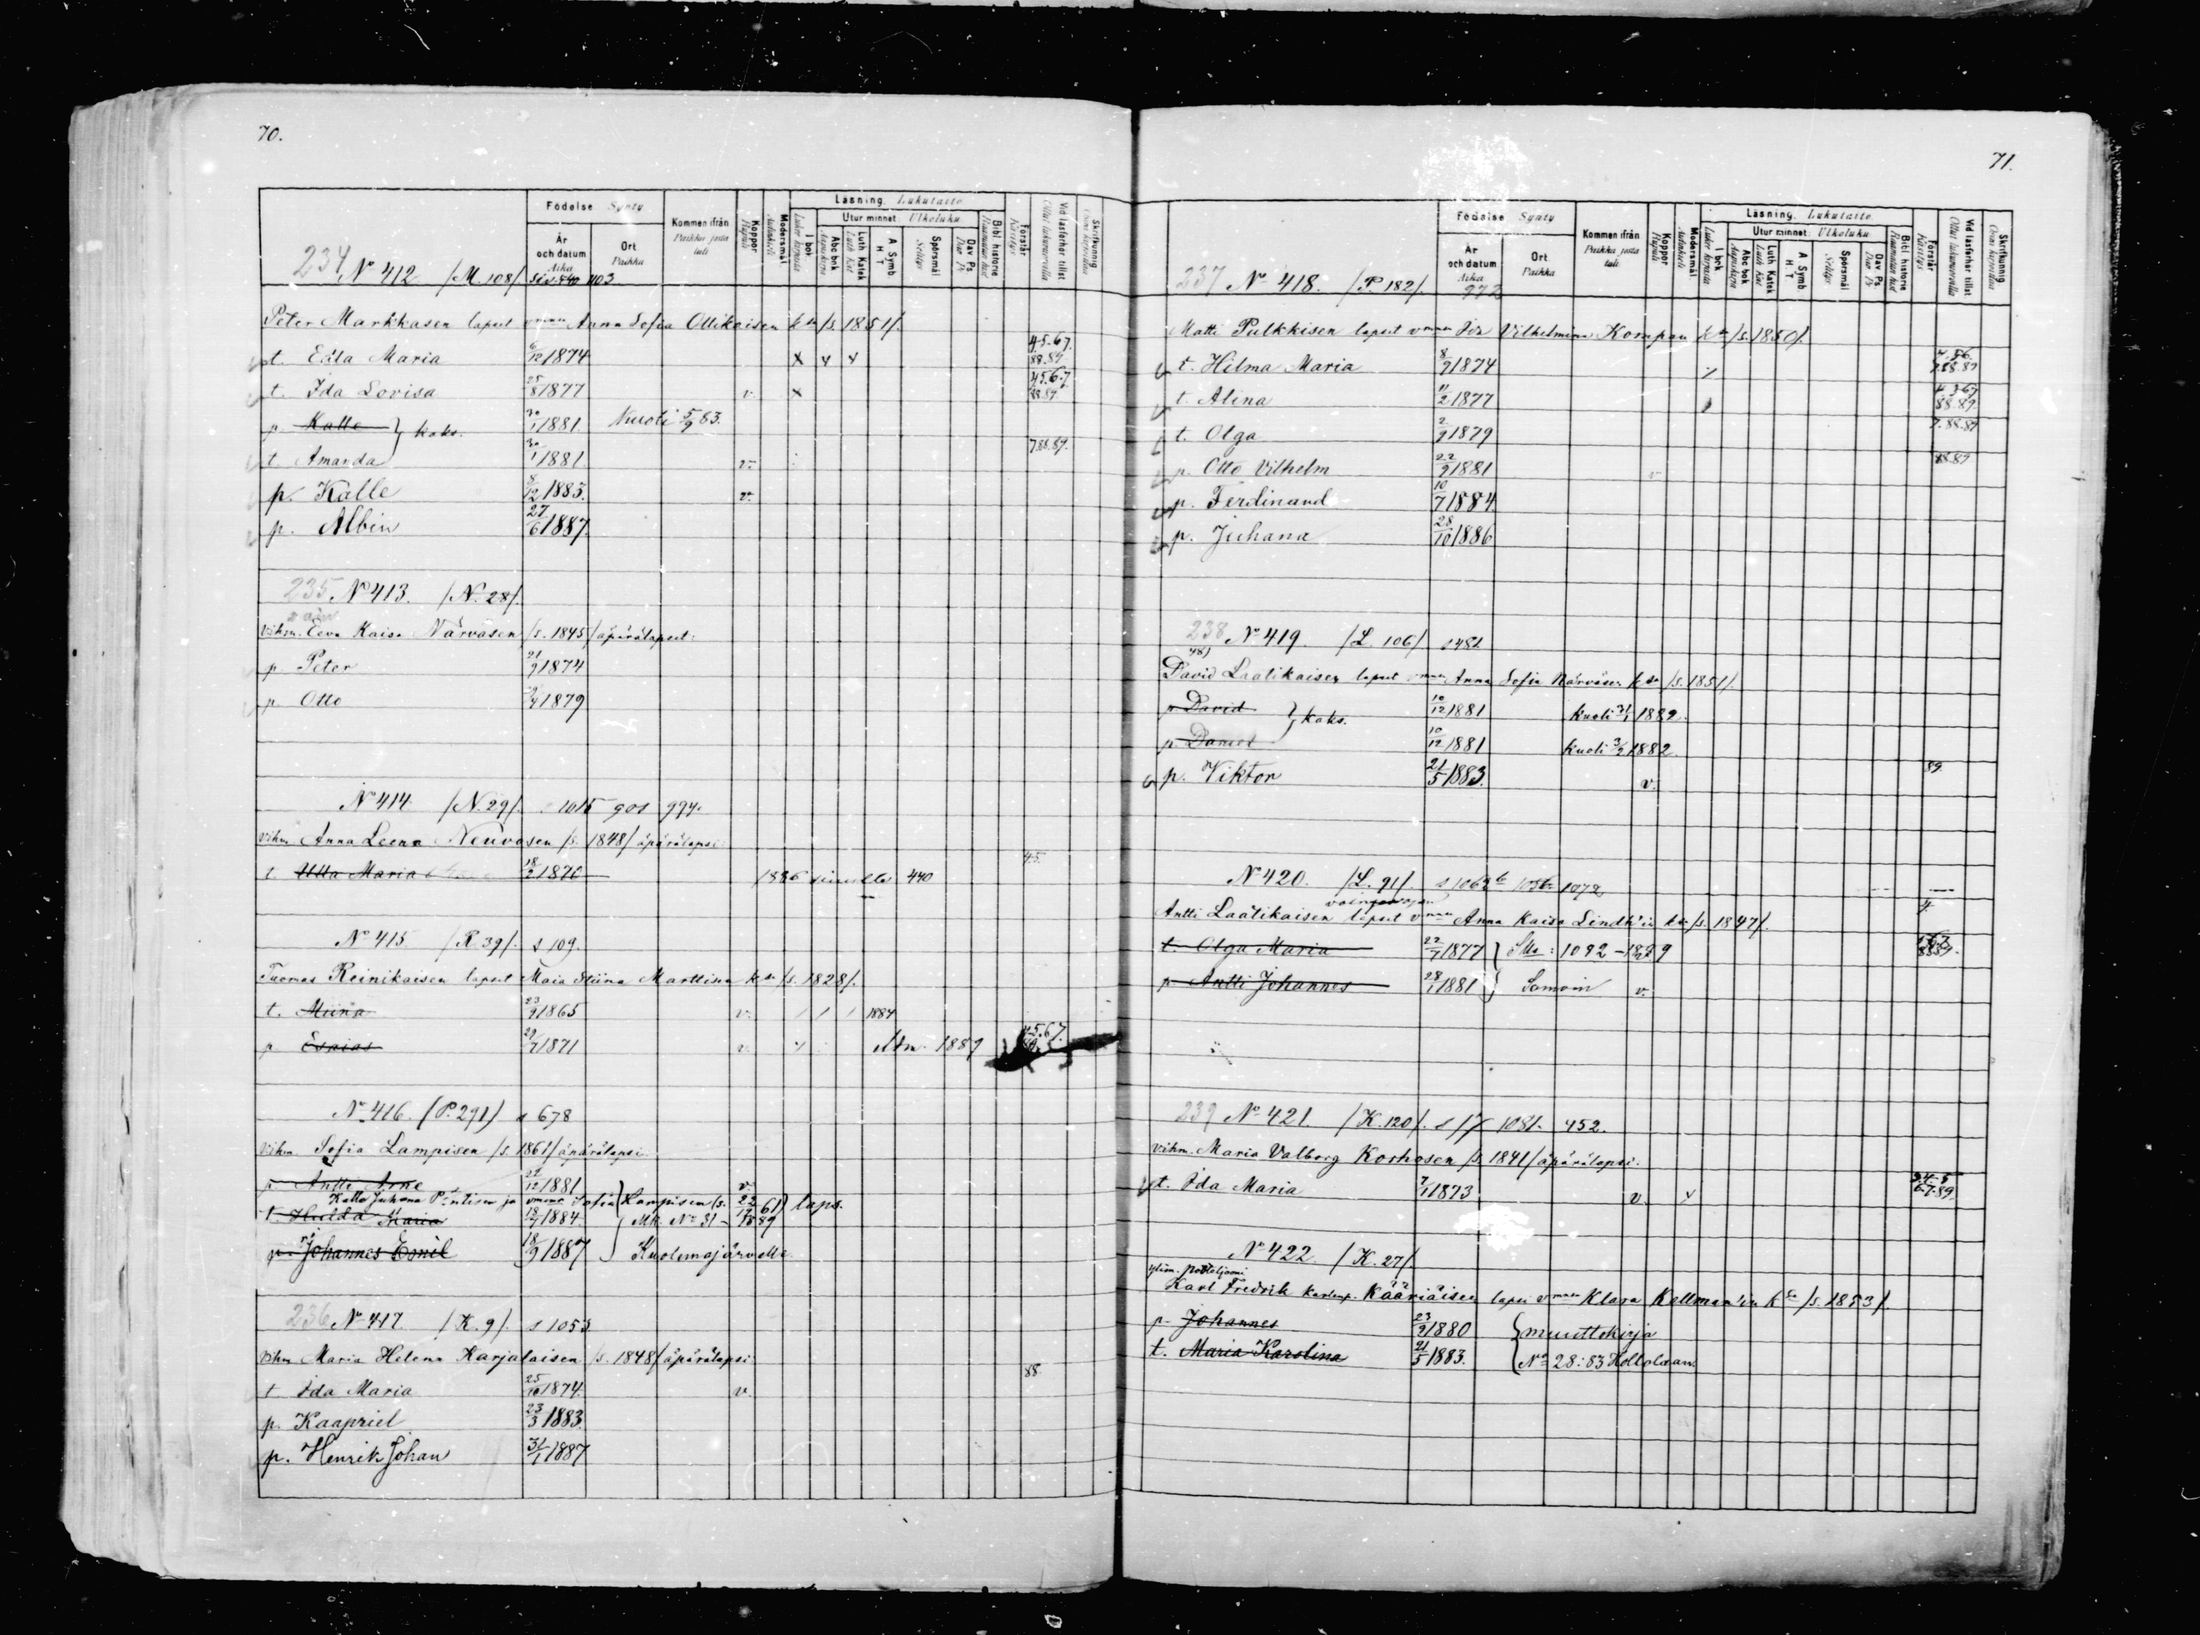 70.
Födelse Synty
År och datum Aika
Ort. Paikka
Kommen ifrån Paikka josta tuli
Koppor Rupuli
Modersmål Äidinkieli
Läsning. Lukutaito
I bok
Utur minnet. Ulkoluku.
Abc bok
Luth. Katek.
A. Symb. H. T.
Spörsmål Selitys
Dav. Ps.
Bibl. historie
Förstår Käsitys
Vid läsförhör tillst.
Skrifkunnig
234 No 412 /M. 108/. siv. 840 1103
Peter Markkasen lapset vmon Anna Sofia Ollikaisen ksa /s. 1851/.
t. Edla Maria 6/12 1874 x v v 4.5.6.7. 88.89
t. Ida Lovisa 25/8 1877 v. x 4.5.6.7 88.89
p. Kalle } kaks. 30/1 1881. Kuoli 5/9 83.
t. Amanda 30/1 1881 v. 7.88.89.
p. Kalle 5/12 1883. v.
p. Albin 27/6 1887.
235 No 413. /N. 28/.
Vihm. Eeva Kaisa Närväsen /s. 1845/ äpärälapset:
p. Peter 21/9 1874
p. Otto 1879
No 414. /N. 29/. 1015 901 994.
Vihm. Anna Leena Neuvosen /s. 1848/ äpärälapsi:
t. Ulla Maria 18/2 1870 1886 sivulle 440 45.
No 415 /R. 39/. s 109.
Tuomas Reinikaisen lapset Maia Stiina Marttisen ksa /s. 1828/.
t. Miina 23/9 1865 v. / / / 1884
p. Esaias 29/7 1871 v. Adm. 1887 4.5.6.7.
No 416. (P. 291) s 678
Vihm Sofia Lampisen /s. 1861/ äpärälapsi.
p. Antti Arne 22/12 1881 v.
Kalle Juhana Pentisen ja vmona Sofia Lampisen (s. 22/12 61) laps.
t. Hulda Maria 18/7 1884 Mk. No 31 - 1889
p. Johannes Eemil 18/9 1887 Kuolemajärvelle
236 No 417. /K. 9/. s 1055
Vihm Maria Helena Karjalaisen /s. 1848/ äpärälapsi:
t Ida Maria 25/10 1874. v. 88.
p. Kaapriel 23/3 1883.
p. Henrik Johan 31/1 1887
71.
Födelse Synty
År och datum Aika
Ort. Paikka
Kommen ifrån Paikka josta tuli
Koppor Rupuli
Modersmål Äidinkieli
Läsning. Lukutaito.
I bok
Utur minnet: Ulkoluku.
Abc bok
Luth. Katek.
A. Symb. H. T.
Spörsmål Selitys
Dav. Ps.
Bibl. historie
Förstår Käsitys
Vid läsförhör tillst.
Skrifkunnig
237 No 418. /P. 182/. 972
Matti Pulkkisen lapset vmon Ida Vilhelmina Kompan ksa /s. 1850/.
t. Hilma Maria 8/9 1874 4.56. 7.88.89
t. Alina 11/2 1877 88.89.
t. Olga 2/9 1879 7.88.89
p. Otto Vilhelm 22/9 1881 v 88.89
p. Ferdinand 10/7 1884
p. Juhana 28/10 1886
238 No 419. /L. 106/. s 481
David Laatikaisen lapset vmon Anna Sofia Närväsen ksa /s. 1851/.
p David } kaks. 10/12 1881 kuoli 31/1 1882.
p. Daniel 10/12 1881 kuoli 3/2 1882
p. Viktor 21/5 1883. v. 89.
No 420. /L. 91/. 1072
Antti Laatikaisen lapset vmon Anna Kaisa Lindh'in ksa /s. 1847/.
t. Olga Maria 22/7 1877
p. Antti Johannes 28/1 1881 v.
239 No 421. /K. 120/. s 17 1081. 452.
Vihm. Maria Valborg Korhosen /s. 1841/ äpärälapsi.
t. Ida Maria 7/1 1873 v. v 6.7.89.
No 422. /K. 27/.
Karl Fredrik Kääriäisen lapsi vmon Klara Kellman'in ksa /s. 1853/.
p Johannes 23/9 1880 { muuttokirja
t. Maria Karolina 21/5 1883. No 28: 83 Hollolaan